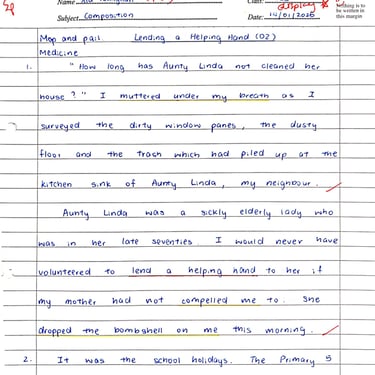 Name
Subject Composition
Date: 14/01/2026
display
Nothing is to
be written in
this margin
Mop and pail. Lending a Helping Hand (02)
Medicine
1. "How long has Aunty Linda not cleaned her
house?" I muttered under my breath as I
surveyed the dirty window panes, the dusty
floor and the trash which had piled up at the
kitchen sink of Aunty Linda, my neighbour.
Aunty Linda was a sickly elderly lady who
was in her late seventies. I would never have
volunteered to lend a helping hand to her if
my mother had not compelled me to. She
dropped the bombshell on me this morning.
2. It was the school holidays. The Primary 5